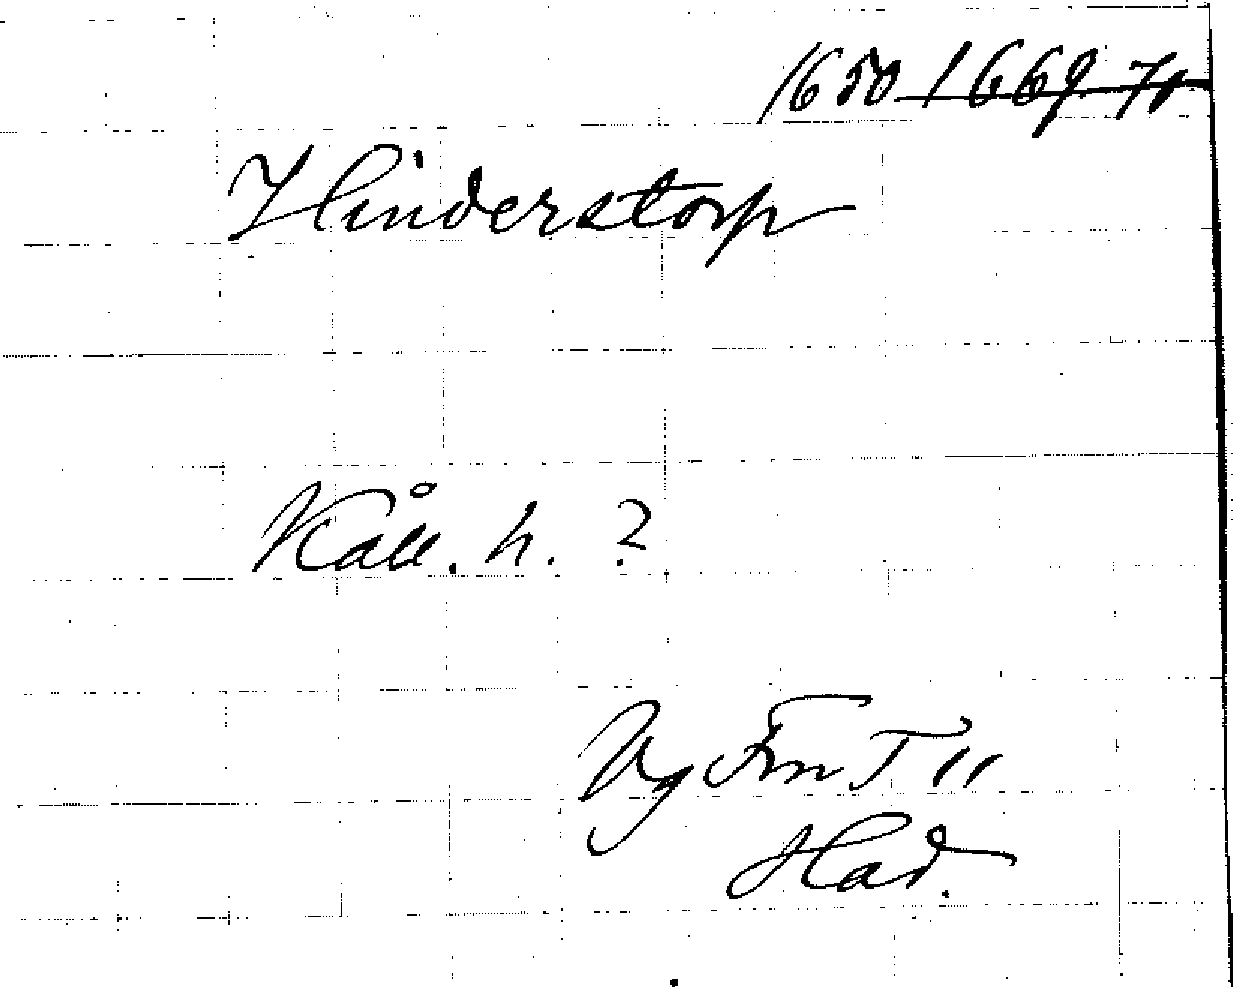 1650 1669 70
Hinderstorp
Kåll. h. ?
Vg Fm T 11
Had.